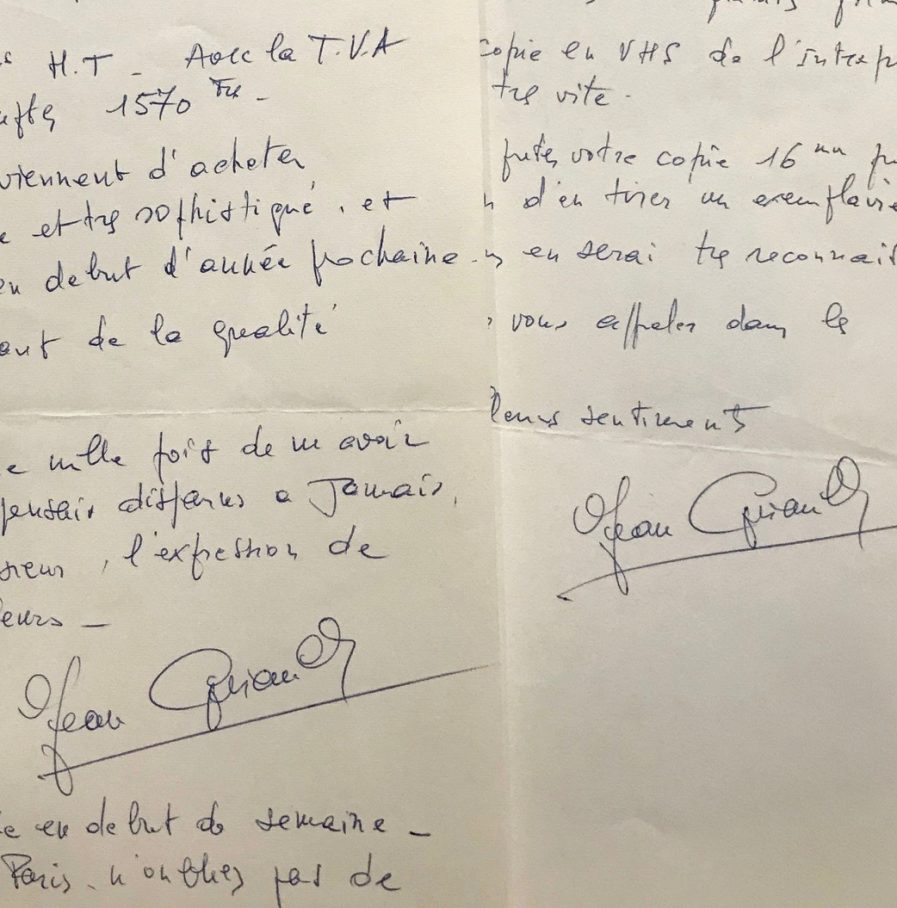 H.T - Avec la T.V.A
1570 Frs -
viennent d'acheter
et trs sophistiqué, et
en debut d'année prochaine -
de la qualité
mille fois de m avoir
disparus a Jamais,
, l'expression de
Jean
e en debut de semaine -
Paris. n'oubliez pas de
copie en VHS de l'
trs vite.
votre copie 16 mm
d'en tirer un exemplaire
en serai trs reconnais
vous appeler dans le
leurs sentiments
Jean